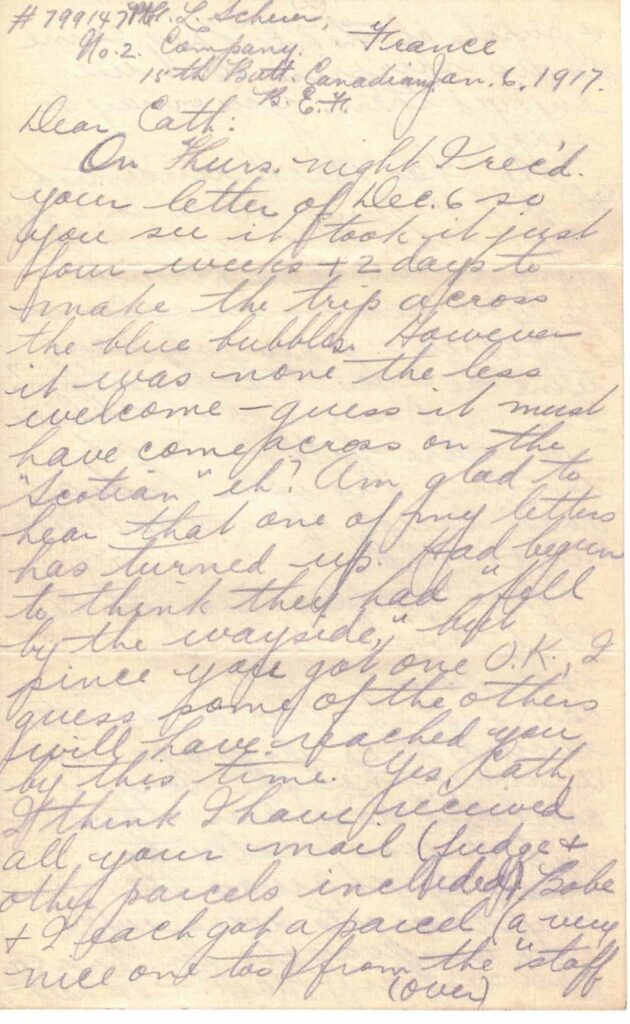 #799147 Pte. L. Scherer,
No. 2. Company. France
15th Batt. Canadians Jan. 6, 1917.
B. E. F.
Dear Cath:
On Thurs. night I rec'd.
your letter of Dec. 6 so
you see it took it just
four weeks + 2 days to
make the trip across
the blue bubbles. However
it was none the less
welcome – guess it must
have come across on the
"Scotian" eh? Am glad to
hear that one of my letters
has turned up. Had begun
to think they had "fell
by the wayside," but
since you got one O.K., I
guess some of the others
will have reached you
by this time. Yes, Cath,
I think I have received
all your mail (fudge +
other parcels included) Bobe
+ I each got a parcel (a very
nice one too) from the "staff
(over)